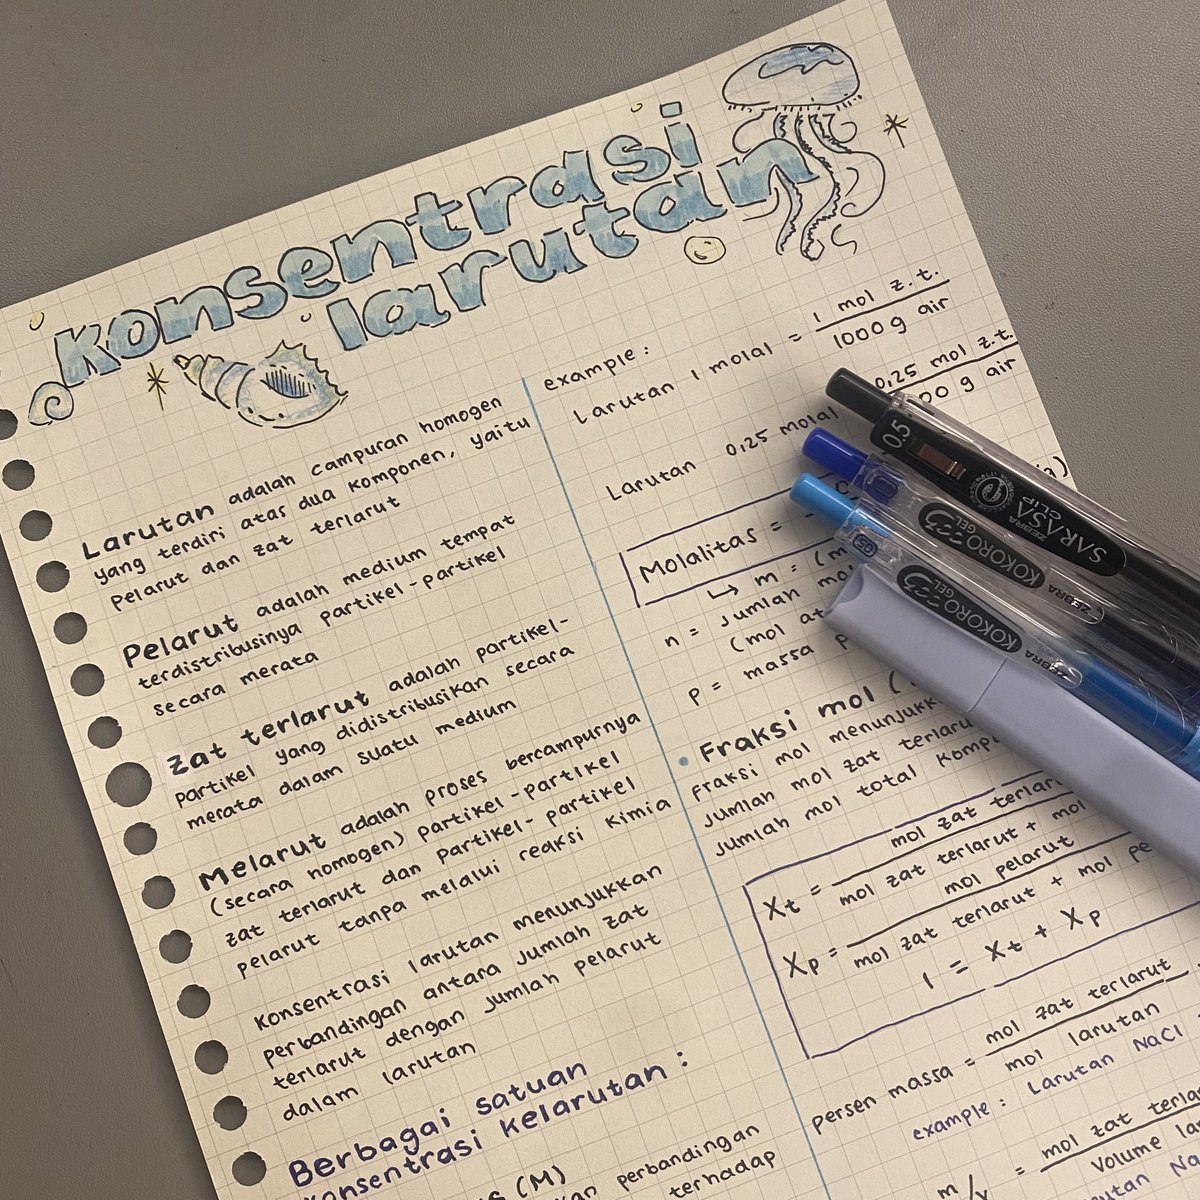 Konsentrasi
larutan
Larutan adalah campuran homogen
yang terdiri atas dua komponen, yaitu
pelarut dan zat terlarut
Pelarut adalah medium tempat
terdistribusinya partikel-partikel
secara merata
zat terlarut adalah partikel-
partikel yang didistribusikan secara
merata dalam suatu medium
Melarut adalah proses bercampurnya
(secara homogen) partikel-partikel
zat terlarut dan partikel-partikel
pelarut tanpa melalui reaksi kimia
Konsentrasi larutan menunjukkan
perbandingan antara jumlah zat
terlarut dengan jumlah pelarut
dalam larutan
Berbagai satuan
konsentrasi kelarutan :
(M)
perbandingan
terhadap
example :
Larutan 1 molal = 1 mol z.t.
1000 g air
Larutan 0,25 molal 0,25 mol z.t.
g air
Molalitas =
↳ m =
n = jumlah
(mol
p = massa
• Fraksi mol
Fraksi mol
jumlah mol zat
jumlah mol total
Xt = mol zat
mol zat terlarut + mol
Xp = mol pelarut
mol zat terlarut + mol
1 = Xt + Xp
persen massa = mol zat terlarut
mol larutan
example : Larutan NaCl
m/v = mol zat
Volume
0.5
SARASA
CLIP
ZEBRA
KOKORO
GEL
ZEBRA
05
KOKORO
GEL
ZEBRA